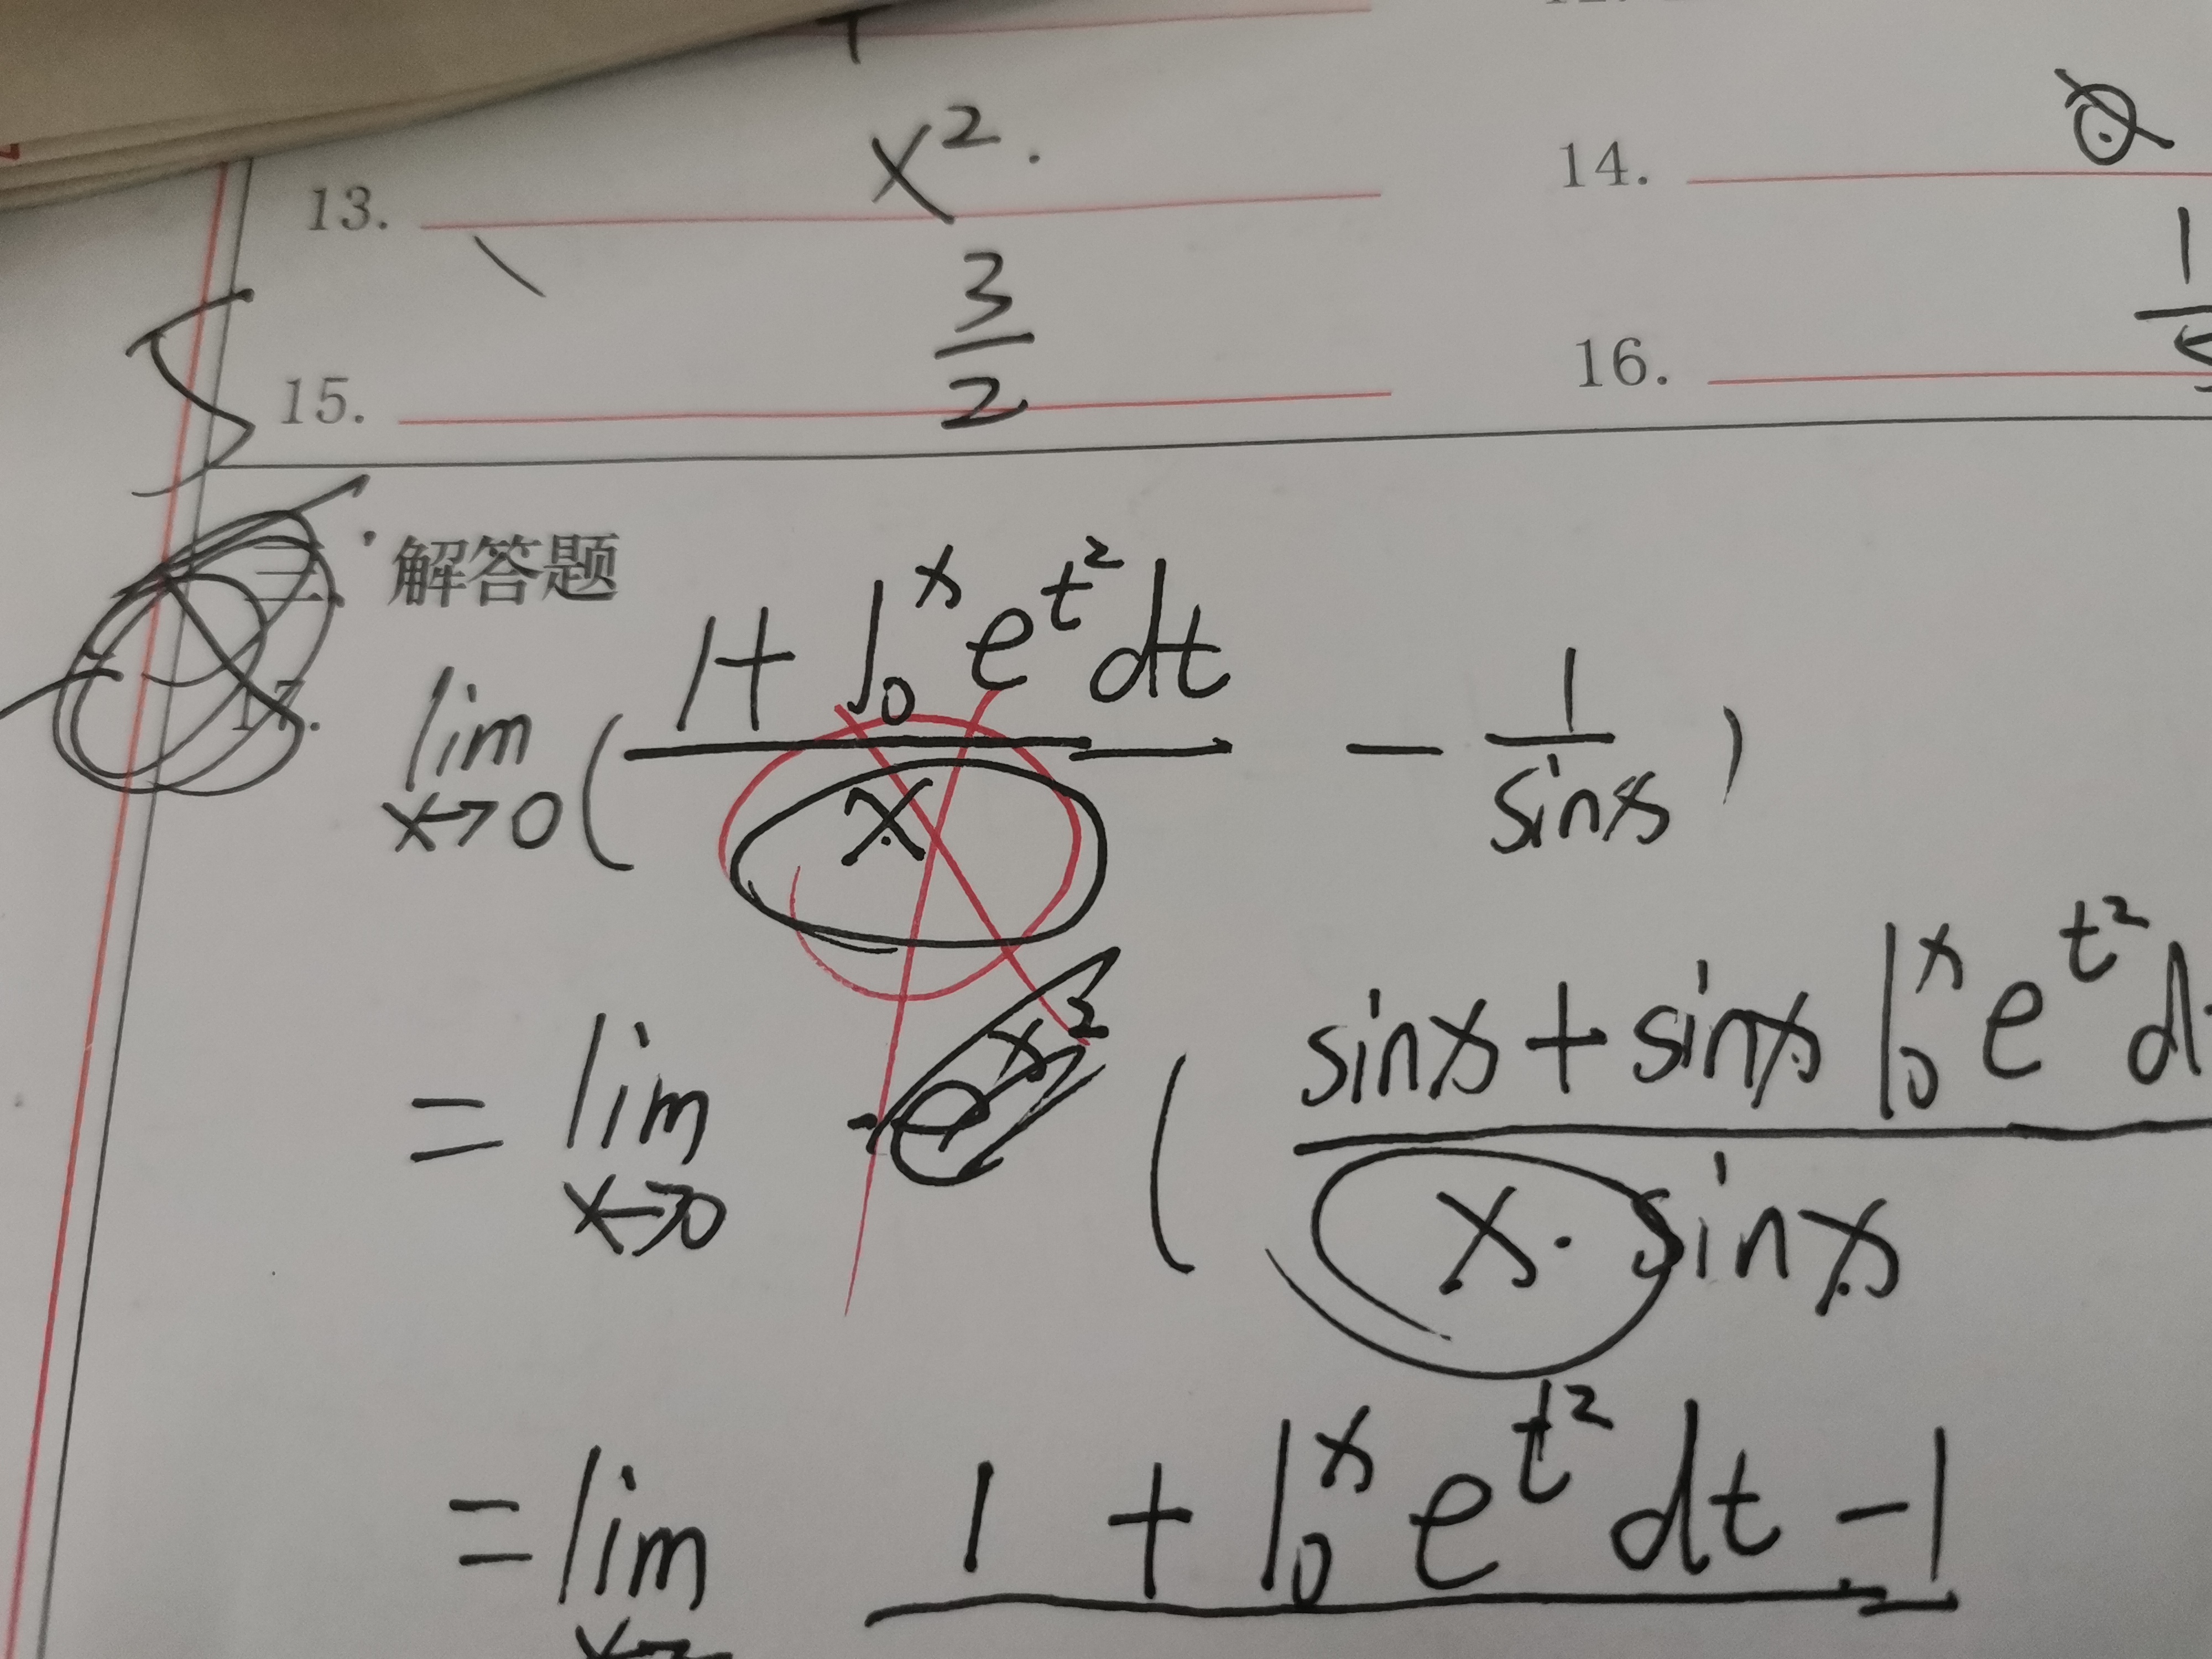 13. x².
14.
15. 3/2
16.
三、解答题
17. lim x→0 ( (1+∫₀ˣ e^(t²) dt)/x − 1/sinx )
= lim x→0 ( (sinx + sinx ∫₀ˣ e^(t²) d
x·sinx
= lim 1 + ∫₀ˣ e^(t²) dt − 1